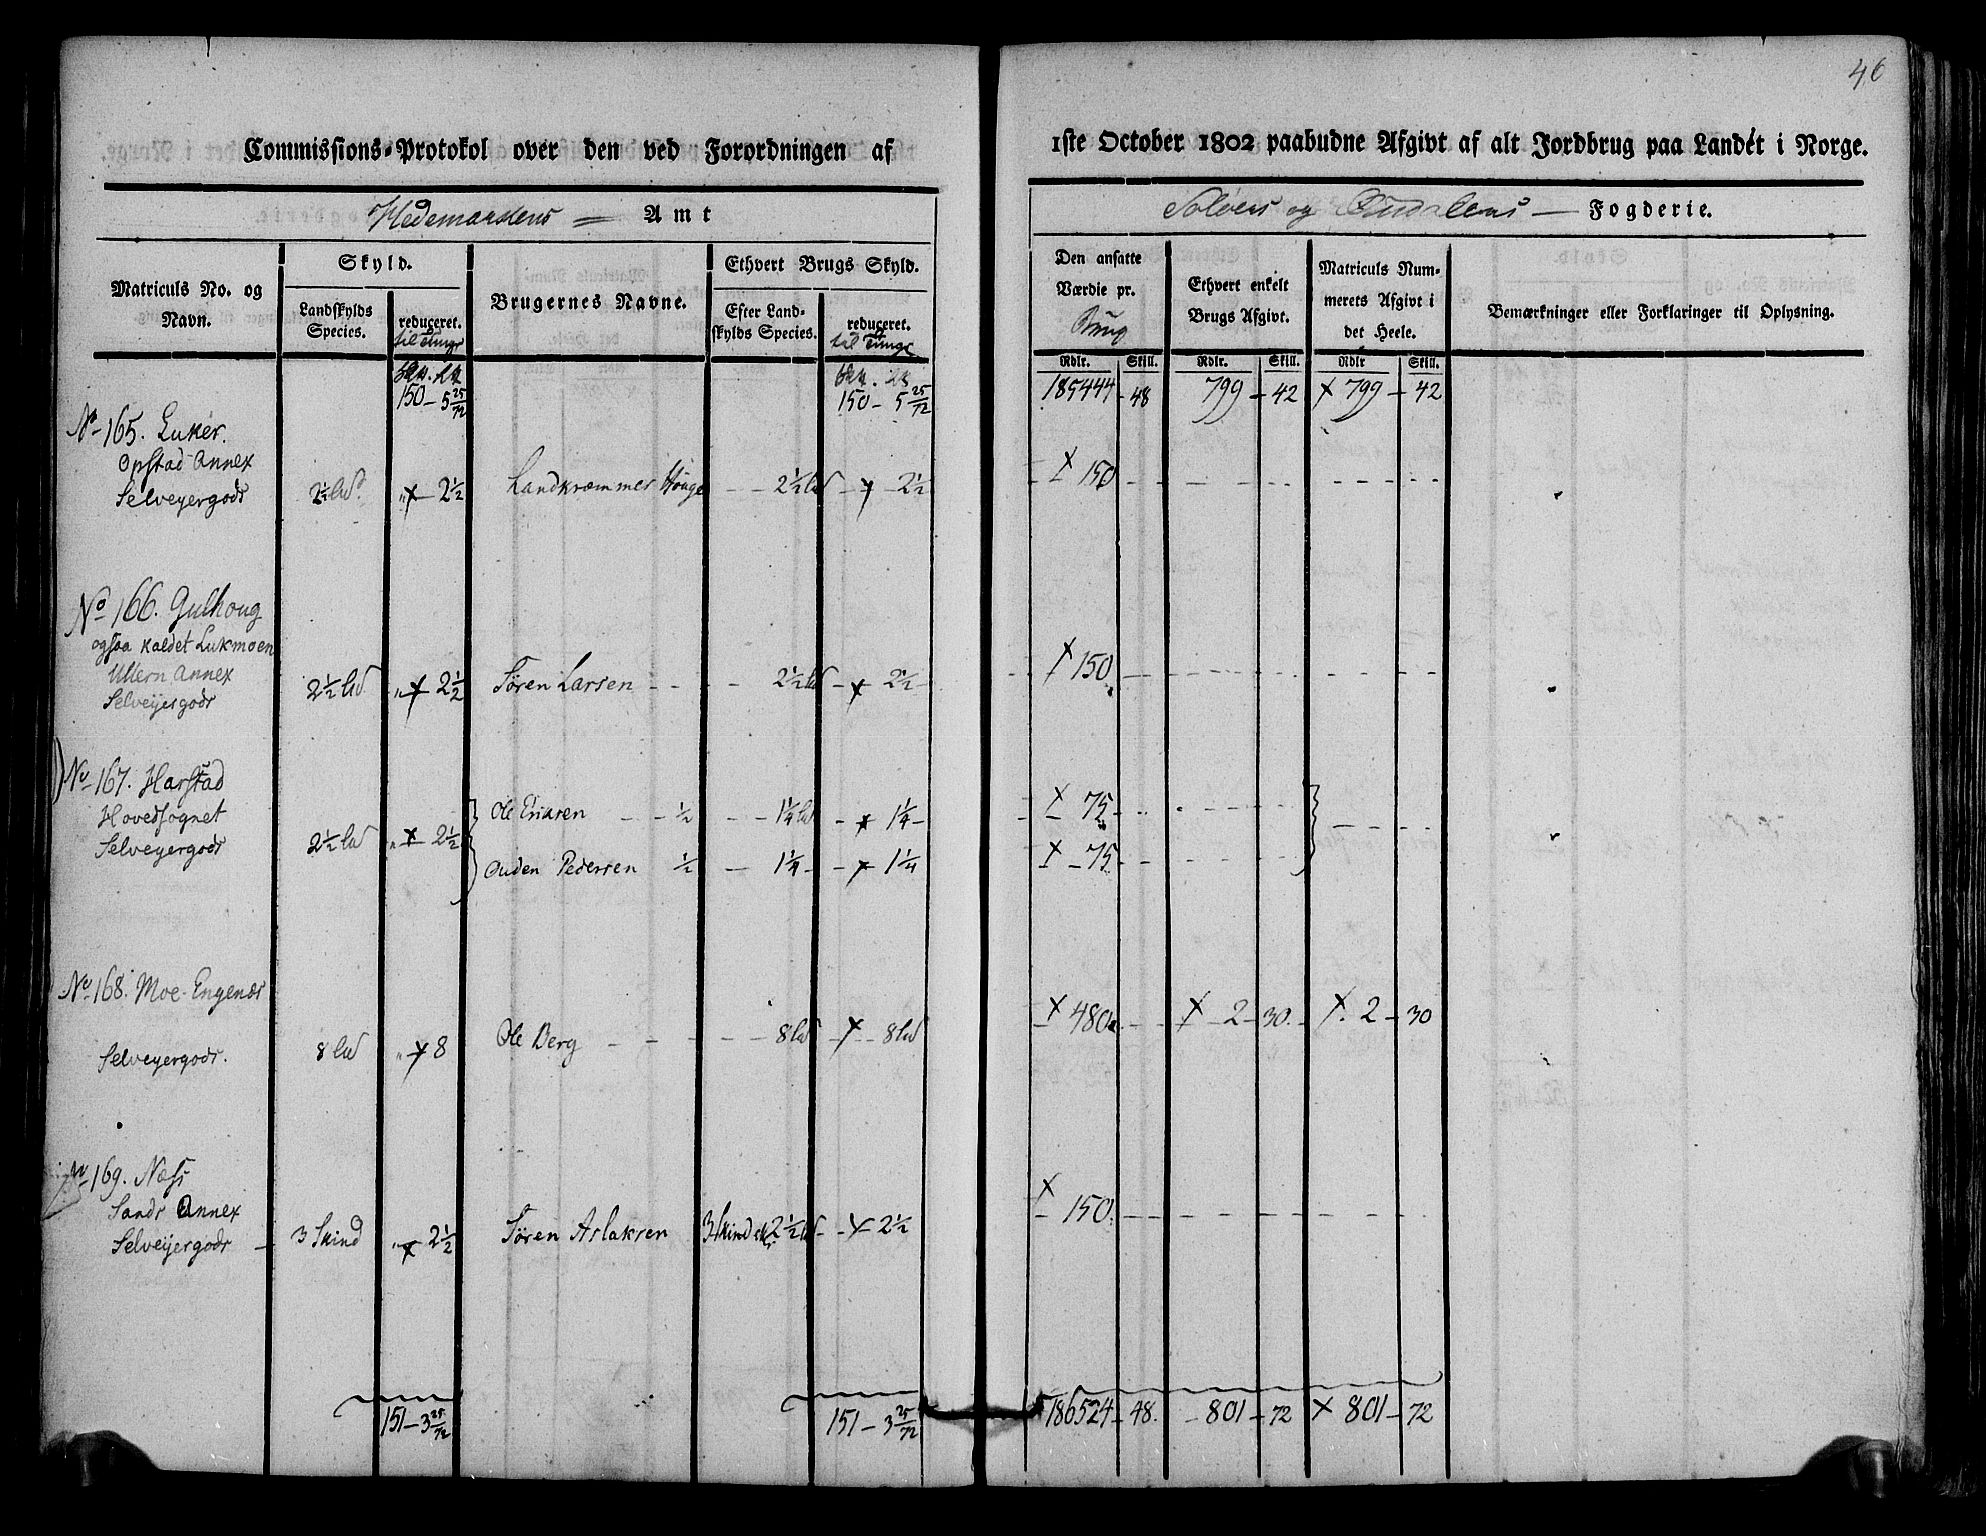 46
Commissions-Protokol over den ved Forordningen af 1ste October 1802 paabudne Afgivt af alt Jordbrug paa Landet i Norge.
Hedemarkens Amt
Soløers og Østerdalens Fogderie.
Matriculs No. og Navn.
Skyld.
Landskylds Species.
reduceret. til Tunge
Brugernes Navne.
Ethvert Brugs Skyld.
Efter Landskylds Species.
reduceret. til Tunge
Den ansatte Værdie pr. Brug
Ethvert enkelt Brugs Afgivt.
Matriculs Nummerets Afgivt i det Heele.
Bemærkninger eller Forklaringer til Oplysning.
Rdlr. Skill. Rdlr. Skill. Rdlr Skill.
150 - 5 25/72 150 - 5 25/72 185444 - 48 799 - 42 x 799 - 42
No 165. Luker.
Opstad Annex
Selveyergods 2½ ld " x 2½ Landkræmmer Houge 2½ ld x 2½ x 150
No 166. Gulhoug
ogsaa kaldet Lukmoen
Ullern Annex
Selveijergods 2½ ld " x 2½ Søren Larsen 2½ ld x 2½ x 150
No 167. Harstad
Hovedsognet
Selveyergods 2½ ld " x 2½
Ole Eriksen ½ 1¼ ld x 1¼ x 75
Ouden Pedersen ½ 1¼ x 1¼ x 75
No 168. Moe-Engenæs
Selveyergods. 8 ld " x 8 Ole Berg 8 ld x 8 ld x 480 x 2 - 30. x 2 - 30
No 169. Næss
Sands Annex
Selveijergods 3 Skind " x 2½ Søren Aslaksen 3 Skind 2½ ld x 2½ x 150
151 - 3 25/72 151 - 3 25/72 186524 - 48. 801 - 72 x 801 - 72